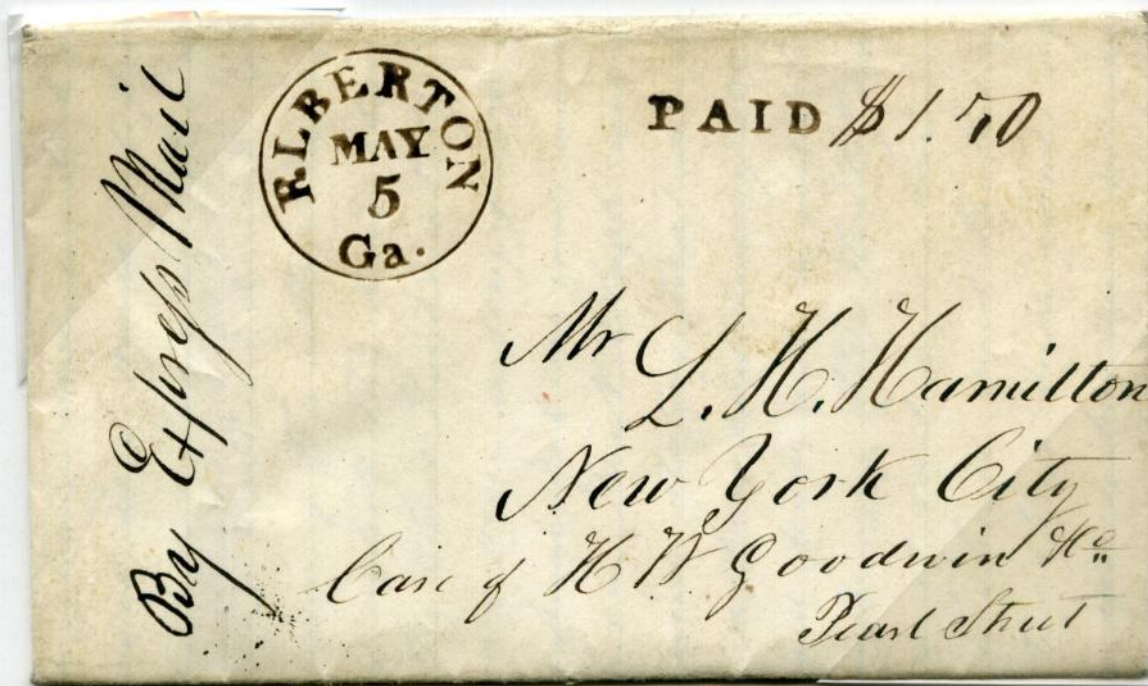 By Express Mail
ELBERTON
MAY
5
Ga.
PAID $1.50
Mr
L. H. Hamilton
New York City
Care of H W Goodwin & Co
Pearl Street